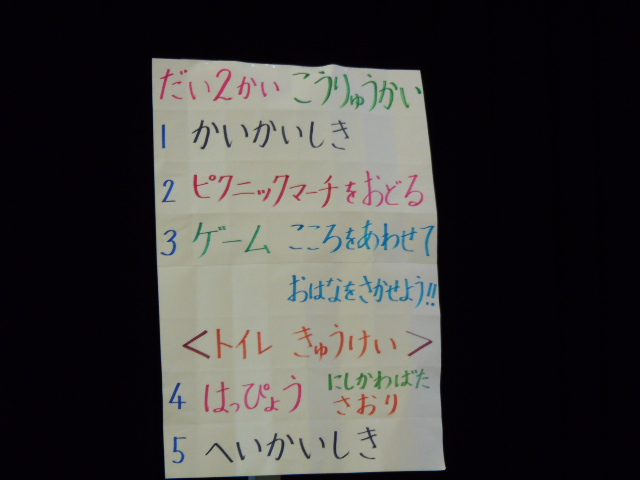 だい2かい こうりゅうかい
1 かいかいしき
2 ピクニックマーチをおどる
3 ゲーム こころをあわせて
おはなをさかせよう!!
<トイレ きゅうけい>
4 はっぴょう にしかわばた
さおり
5 へいかいしき